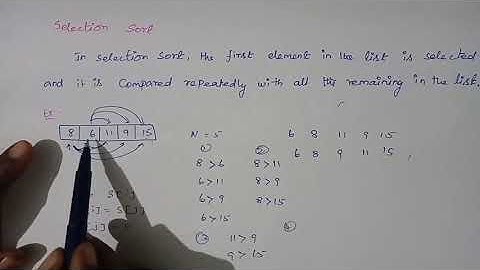 Selection Sort
In selection sort, the first element in the list is selected
and it is compared repeatedly with all the remaining in the list.
Ex:
8 6 11 9 15
N = 5
6 8 11 9 15
6 8 11 9 15
8 > 6 8 > 11
6 > 11 8 > 9
6 > 9 8 > 15
6 > 15
11 > 9
9 > 15